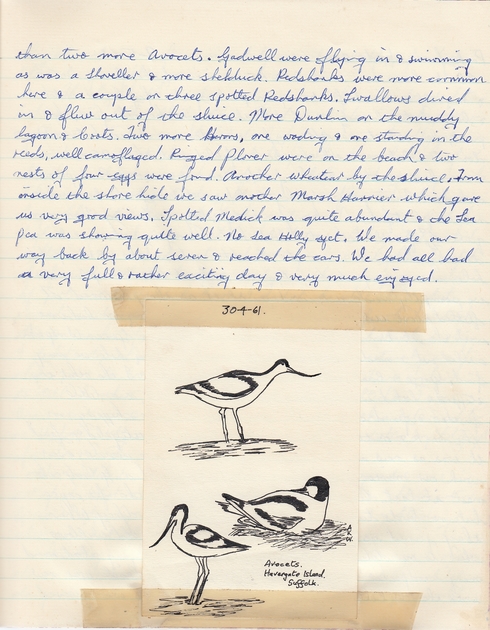 than two more Avocets. Gadwell were flying in & swimming
as was a Shoveller & more shelduck. Redshanks were more common
here & a couple or three Spotted Redshanks. Swallows dived
in & flew out of the sluice. More Dunlin on the muddy
lagoon & Coots. Two more Herons, one wading & one standing in the
reeds, well camoflaged. Ringed Plover were on the beach & two
nests of four eggs were found. Another Wheatear by the sluice. From
inside the shore hide we saw another Marsh Harrier which gave
us very good views. Spotted Medick was quite abundant & the Sea
pea was showing quite well. No Sea Holly yet. We made our
way back by about seven & reached the cars. We had all had
a very full & rather exciting day & very much enjoyed.
30-4-61.
Avocets.
Havergate Island.
Suffolk.